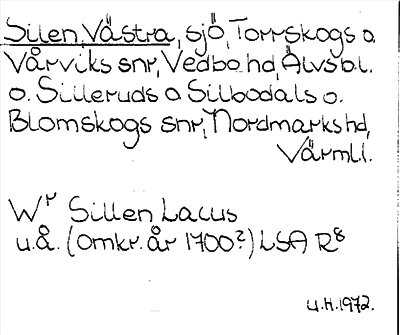 Silen, Västra, sjö, Torrskogs o.
Vårviks snr, Vedbo hd, Älvsb.l.
o. Silleruds o Silbodals o.
Blomskogs snr, Nordmarks hd,
Värml.l.
Wr Sillen Lacus
u.å. (omkr. år 1700?) LSA R8
U.H.1972.